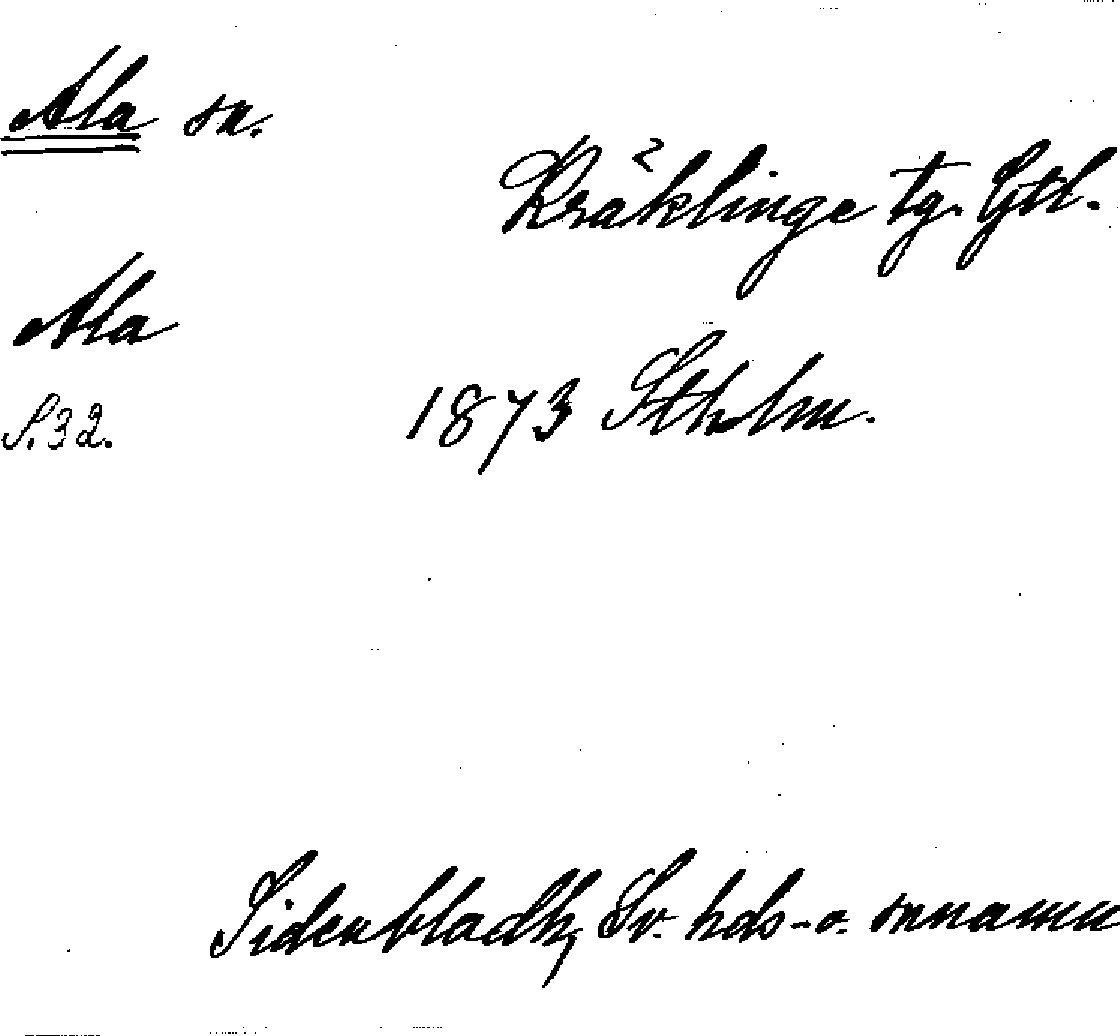 Ala sn.
Kräklinge tg. Gtl.
Ala
S. 32.
1873 Sthlm.
Sidenbladh, Sv. hds- o. snnamn